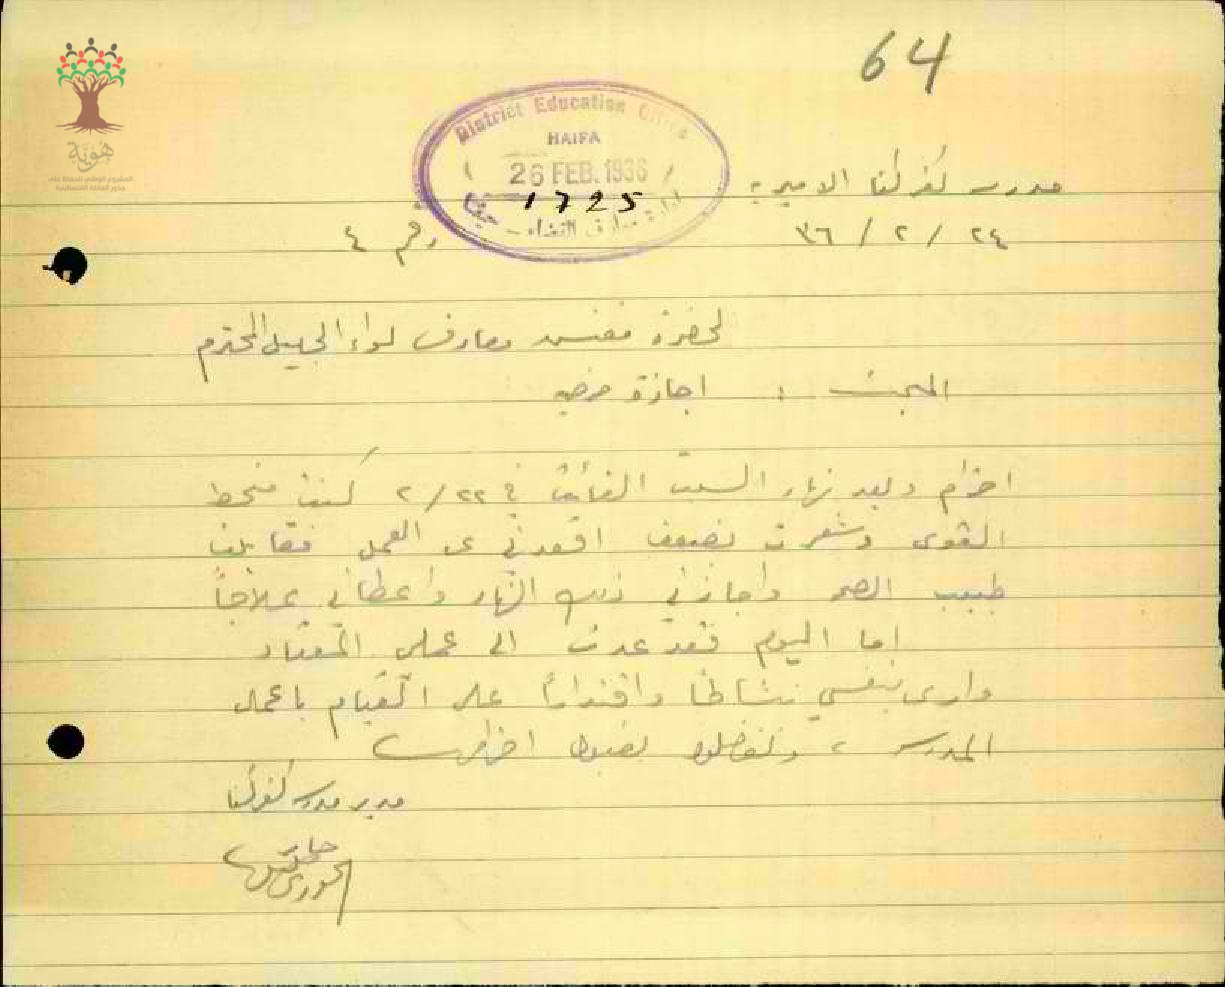 64
هوية
المشروع الوطني للحفاظ على
جذور العائلة الفلسطينية
District Education Office
HAIFA
26 FEB. 1936
1725
ادارة معارف القضاء - حيفا
مدرسة كفركنا الاميرية
٢٤ / ٢ / ٣٦
رقم ٤
لحضرة مفتش معارف لواء الجليل المحترم
المبحث : اجازة مرضيه
احترام وبعد نهار السبت الفائت في ٢٢/٢ كنت منحط
القوى وشعرت بضعف اقعدني عن العمل فقابلت
طبيب الصحة واجازني ذلك النهار واعطاني علاجاً
اما اليوم فقد عدت الى عملي المعتاد
وارى بنفسي نشاطاً واقتداراً على القيام باعمال
المدرسة ، وتفضلوا بقبول احترامي
مدير مدرسة كفركنا
الخوري